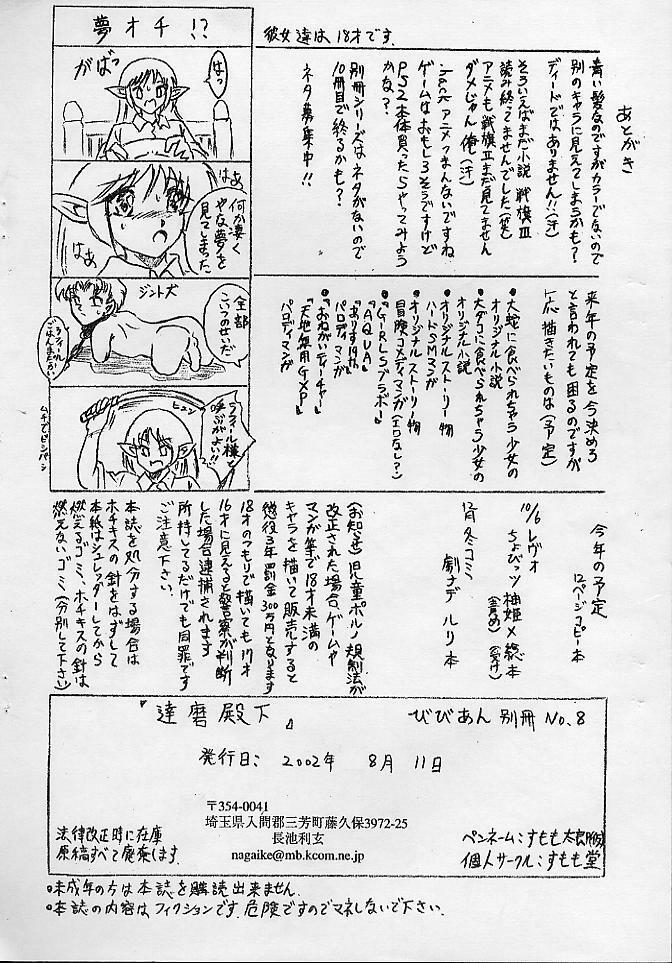 夢オチ!?
がばっ
はっ
はあ
何か凄く
やな夢を
見てしまった
はあ
ジント犬
全部
こいつのせいだ
ラフィール
ごはんまだかい
ヒュン
ラフィール様と
呼ぶがよい!!
ムチでビシバシ
彼女達は18才です.
あとがき
青い髪なのですがカラーでないので
別のキャラに見えてしまうかも?
ディードではありません!!(汗)
そういえばまだ小説 戦旗III
読み終ってませんでした(笑)
アニメも戦旗IIまだ見てません
ダメじゃん 俺(汗)
.hack アニメつまんないですね
ゲームはおもしろそうですけど
PS2本体買ったらやってみよう
かな?.
別冊シリーズはネタがないので
10冊目で終るかも?
ネタ募集中!!
来年の予定を今決めろ
と言われても困るのですが
一応描きたいものは(予定)
●大蛇に食べられちゃう少女の
オリジナル小説
●大ダコに食べられちゃう少女の
オリジナル小説
●オリジナルストーリー物
ハードSMマンガ
●オリジナルストーリー物
冒険コメディマンガ(エロなし?)
●『GIRLSブラボー』
『AQUA』
『ありす19th』
パロディマンガ
●『おねがいティーチャー』
『天地無用GXP』
パロディマンガ
今年の予定
12ページコピー本
10/6 レヴォ
ちょびっツ 柚姫×総本
(責め) (受け)
12月冬コミ
劇ナデルリ本
(お知らせ)児童ポルノ規制法が
改正された場合、ゲームや
マンガ等で18才未満の
キャラを描いて販売すると
懲役3年罰金300万円となります
18才のつもりで描いても17才
16才に見えると警察が判断
した場合逮捕されます
所持してるだけでも同罪です
ご注意下さい.
本誌を処分する場合は
ホチキスの針をはずして
本紙はシュレッダーしてから
燃えるゴミ、ホチキスの針は
燃えないゴミ(分別して下さい)
『達磨殿下』
びびあん 別冊 No.8
発行日: 2002年 8月 11日
〒354-0041
埼玉県入間郡三芳町藤久保3972-25
長池利玄
nagaike@mb.kcom.ne.jp
法律改正時に在庫
原稿すべて廃棄します.
ペンネーム:すもも太郎(仮)
個人サークル:すもも堂
○未成年の方は本誌を購読出来ません.
○本誌の内容はフィクションです.危険ですのでマネしないで下さい.